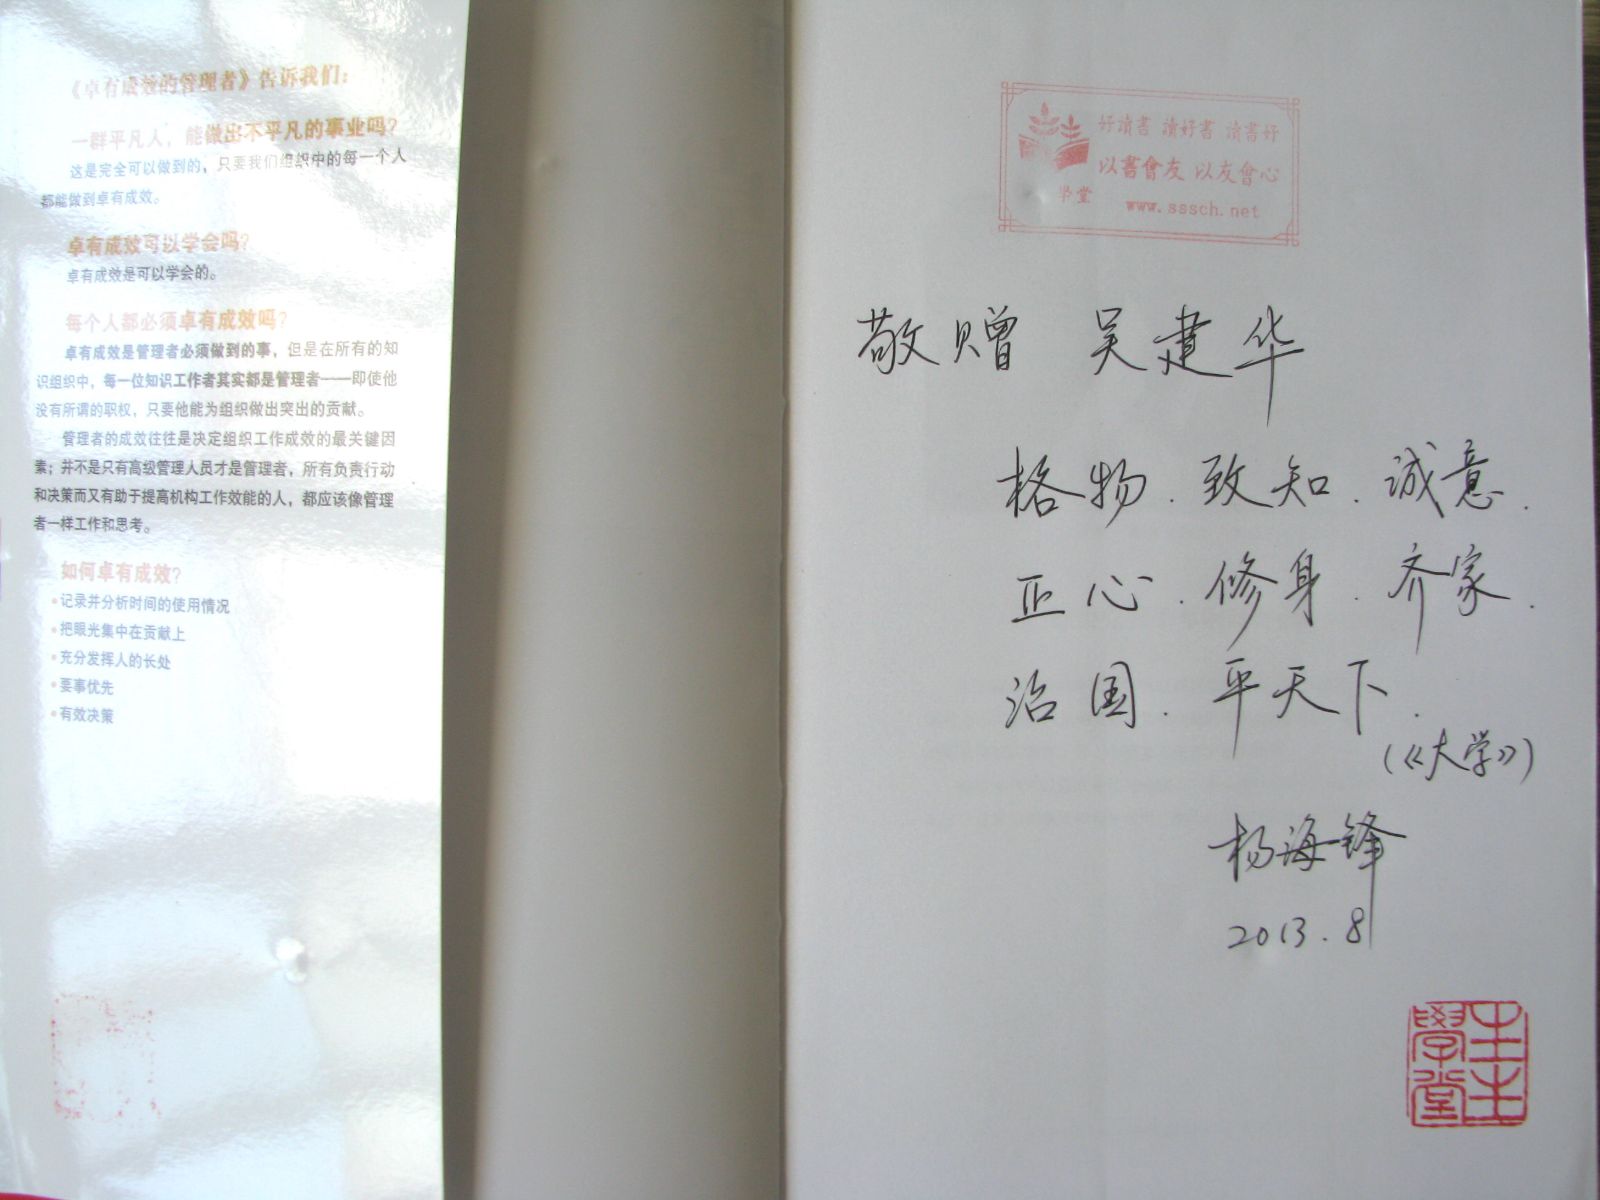 《卓有成效的管理者》告诉我们：
一群平凡人，能做出不平凡的事业吗？
这是完全可以做到的，只要我们组织中的每一个人
都能做到卓有成效。
卓有成效可以学会吗？
卓有成效是可以学会的。
每个人都必须卓有成效吗？
卓有成效是管理者必须做到的事，但是在所有的知
识组织中，每一位知识工作者其实都是管理者——即使他
没有所谓的职权，只要他能为组织做出突出的贡献。
管理者的成效往往是决定组织工作成效的最关键因
素；并不是只有高级管理人员才是管理者，所有负责行动
和决策而又有助于提高机构工作效能的人，都应该像管理
者一样工作和思考。
如何卓有成效？
•记录并分析时间的使用情况
•把眼光集中在贡献上
•充分发挥人的长处
•要事优先
•有效决策
好讀書 讀好書 讀書好
以書會友 以友會心
學堂 www.sssch.net
敬赠 吴建华
格物.致知.诚意.
正心.修身.齐家.
治国.平天下.
(《大学》)
杨海锋
2013.8
生生
學堂